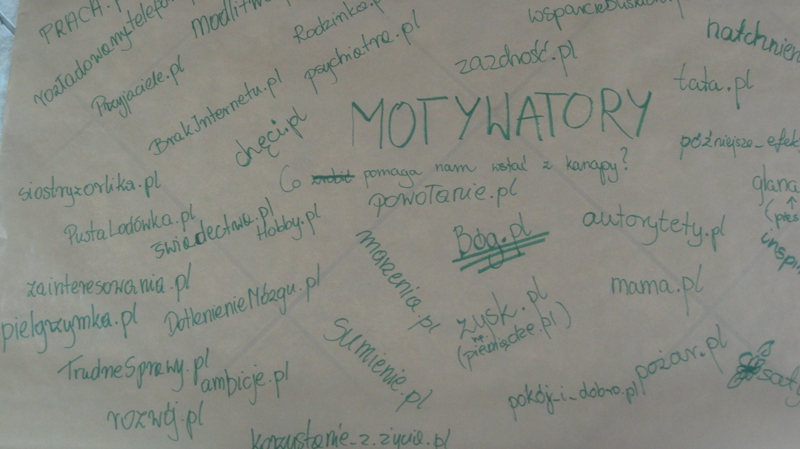 PRACA.
rozładowanytelefon
Modlitwa
Rodzinka.p
wsparcieDuskch
natchnien
Przyjaciele.pl
psychiatra.pl
zazdność.pl
tata.pl
BrakInternetu.pl
chęci.pl
MOTYWATORY
późniejsze_efek
Co zrobić pomaga nam wstać z kanapy?
siostryzorlika.pl
powołanie.pl
glana
(pies
PustaLodówka.pl
świadectwa.pl
Hobby.pl
Bóg.pl
autorytety.pl
inspi
marzenia.pl
zainteresowania.pl
mama.pl
pielgrzymka.pl
DotlenienieMózgu.pl
zysk.pl
(nie pieniądze.pl)
sumienie.pl
TrudneSprawy.pl
ambicje.pl
pożar.pl
saty
pokój_i_dobro.pl
rozwój.pl
korzystanie_z_życia.pl